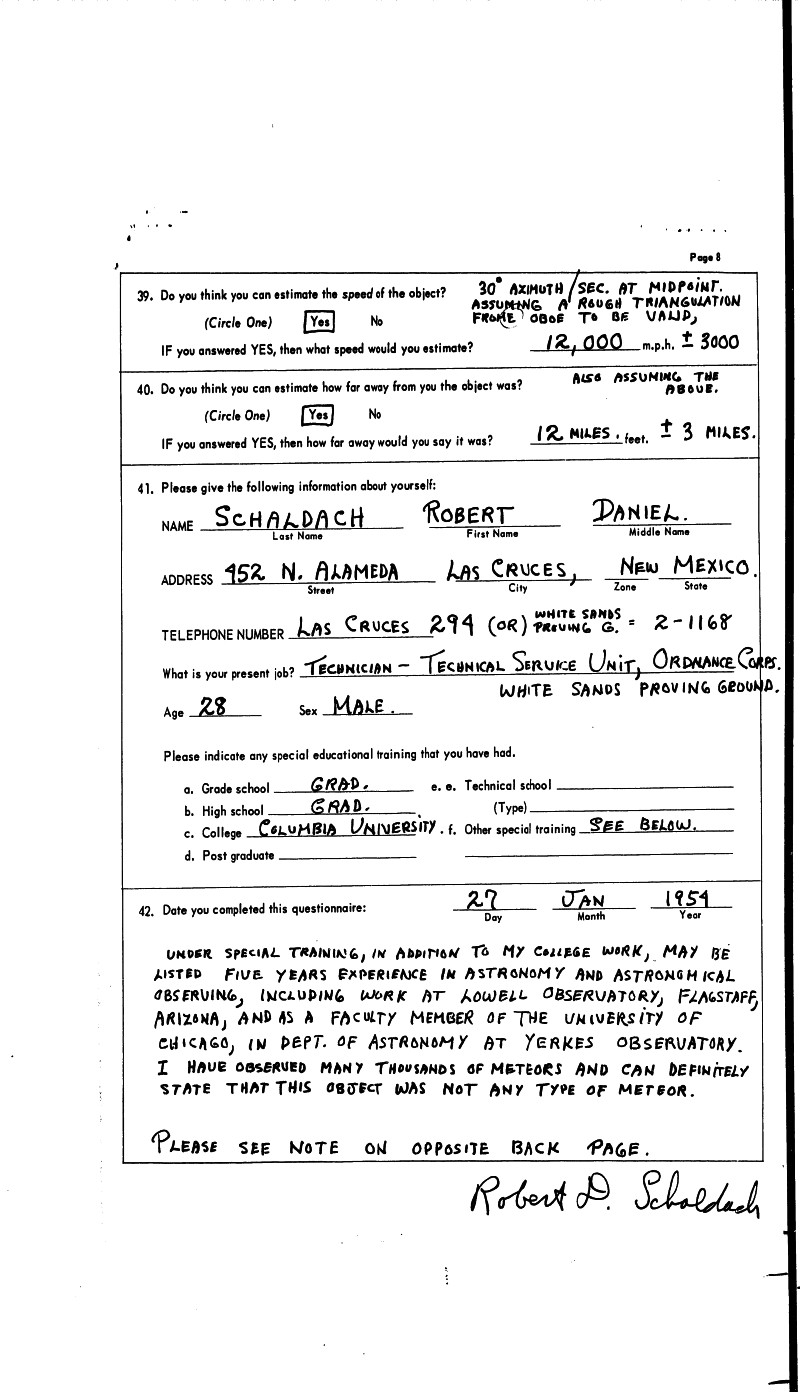 Page 8
39. Do you think you can estimate the speed of the object?
30° AZIMUTH/SEC. AT MIDPOINT.
ASSUMING A ROUGH TRIANGULATION
FROM OBOE TO BE VALID,
(Circle One) Yes No
IF you answered YES, then what speed would you estimate? 12,000 m.p.h. ± 3000
40. Do you think you can estimate how far away from you the object was?
ALSO ASSUMING THE
ABOVE.
(Circle One) Yes No
IF you answered YES, then how far away would you say it was? 12 MILES. feet. ± 3 MILES.
41. Please give the following information about yourself:
NAME SCHALDACH ROBERT DANIEL.
Last Name First Name Middle Name
ADDRESS 952 N. ALAMEDA LAS CRUCES, NEW MEXICO.
Street City Zone State
TELEPHONE NUMBER LAS CRUCES 294 (OR) WHITE SANDS PROVING G. = 2-1168
What is your present job? TECHNICIAN - TECHNICAL SERVICE UNIT, ORDNANCE CORPS.
WHITE SANDS PROVING GROUND.
Age 28 Sex MALE.
Please indicate any special educational training that you have had.
a. Grade school GRAD. e. e. Technical school
b. High school GRAD. (Type)
c. College COLUMBIA UNIVERSITY. f. Other special training SEE BELOW.
d. Post graduate
42. Date you completed this questionnaire: 27 JAN 1954
Day Month Year
UNDER SPECIAL TRAINING, IN ADDITION TO MY COLLEGE WORK, MAY BE
LISTED FIVE YEARS EXPERIENCE IN ASTRONOMY AND ASTRONOMICAL
OBSERVING, INCLUDING WORK AT LOWELL OBSERVATORY, FLAGSTAFF,
ARIZONA, AND AS A FACULTY MEMBER OF THE UNIVERSITY OF
CHICAGO, IN DEPT. OF ASTRONOMY AT YERKES OBSERVATORY.
I HAVE OBSERVED MANY THOUSANDS OF METEORS AND CAN DEFINITELY
STATE THAT THIS OBJECT WAS NOT ANY TYPE OF METEOR.
PLEASE SEE NOTE ON OPPOSITE BACK PAGE.
Robert D. Schaldach